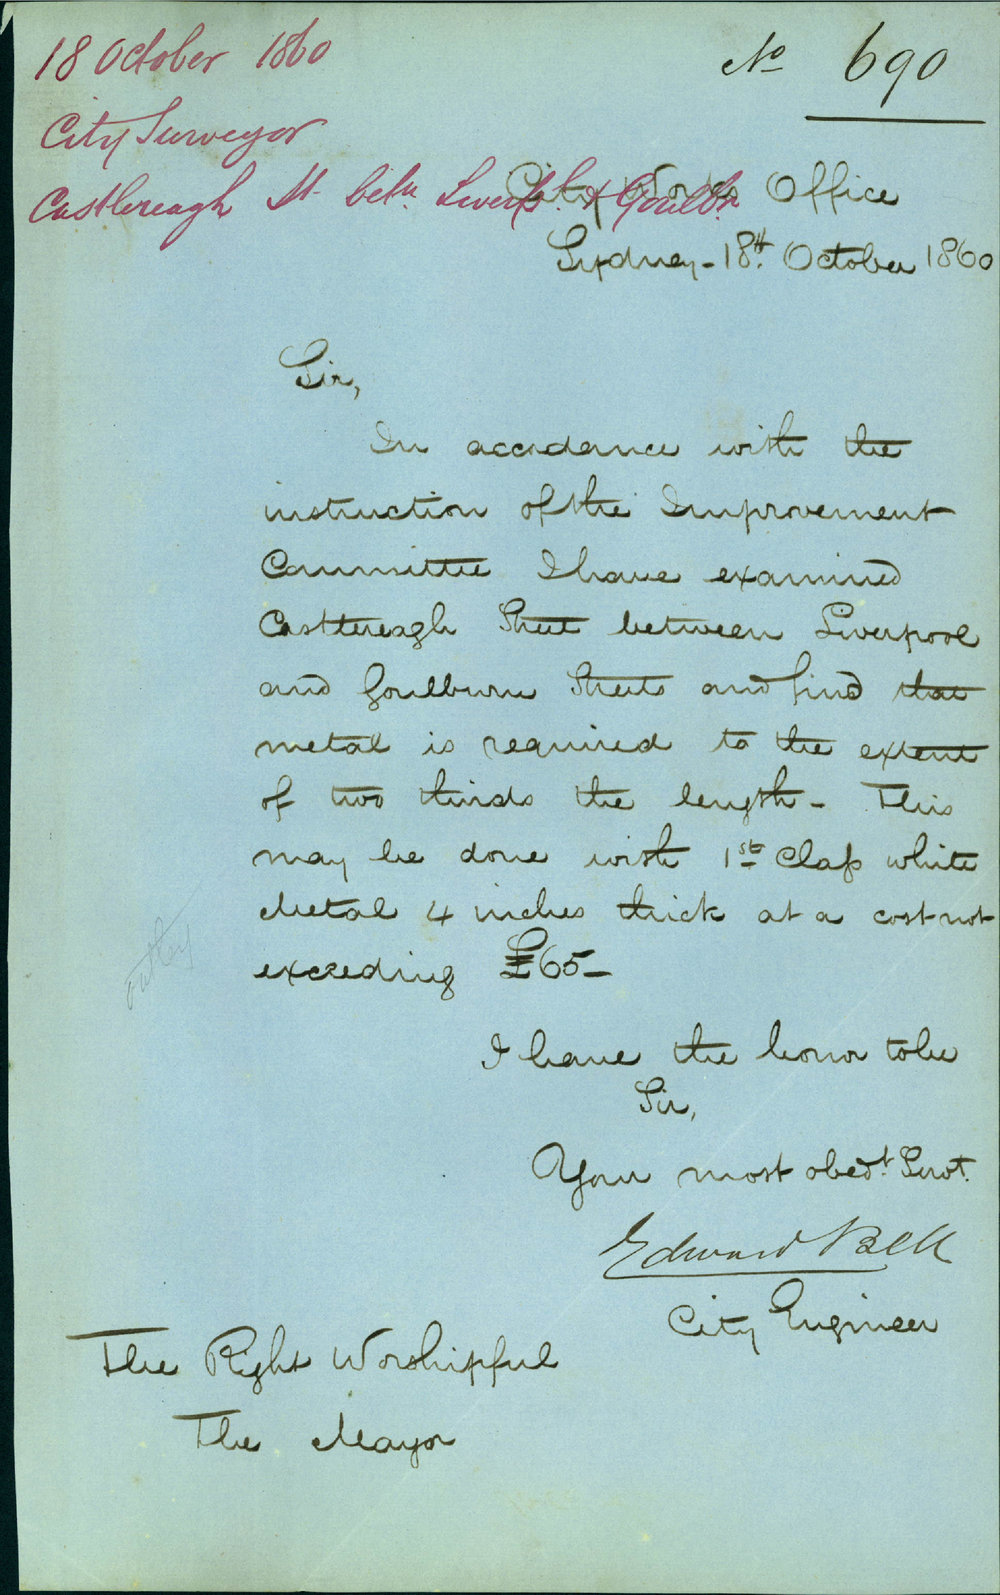 18 October 1860
No 690
City Surveyor
Castlereagh St betn. Liverpl. & Goulbn
City Works Office
Sydney - 18th. October 1860
Sir,
In accordance with the
instruction of the Improvement
Committee I have examined
Castlereagh Street between Liverpool
and Goulburn Streets and find that
metal is required to the extent
of two thirds the length - This
may be done with 1st Class white
Metal 4 inches thick at a cost not
exceeding £65 -
I have the honor to be
Sir,
Your most obedt. Servt.
Edward Bell
City Engineer
The Right Worshipful
The Mayor